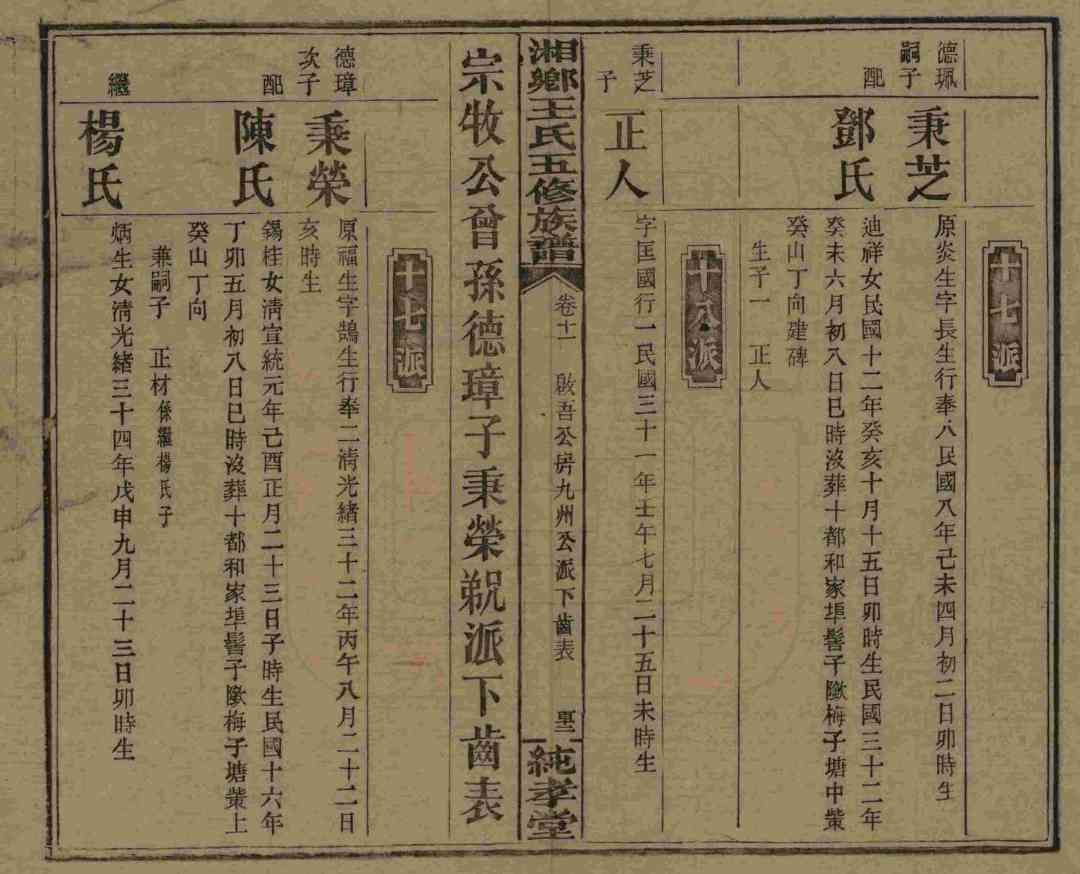 十七派
德珮嗣子
秉芝
原炎生字長生行奉八民國八年己未四月初二日卯時生
配
鄧氏
迪祥女民國十二年癸亥十月十五日卯時生民國三十二年
癸未六月初八日巳時沒葬十都和家埠髻子歟梅子塘中塋
癸山丁向建碑
生子一 正人
十八派
秉芝子
正人
字匡國行一民國三十一年壬午七月二十五日未時生
湘鄉王氏五修族譜
卷十一 啟吾公房九州公派下齒表
純孝堂
宗牧公曾孫德璋子秉榮覜派下齒表
十七派
德璋次子
秉榮
原福生字鵠生行奉二清光緒三十二年丙午八月二十二日
亥時生
配
陳氏
錫桂女清宣統元年己酉正月二十三日子時生民國十六年
丁卯五月初八日巳時沒葬十都和家埠髻子歟梅子塘塋上
癸山丁向
兼嗣子 正材係繼楊氏子
繼
楊氏
炳生女清光緒三十四年戊申九月二十三日卯時生